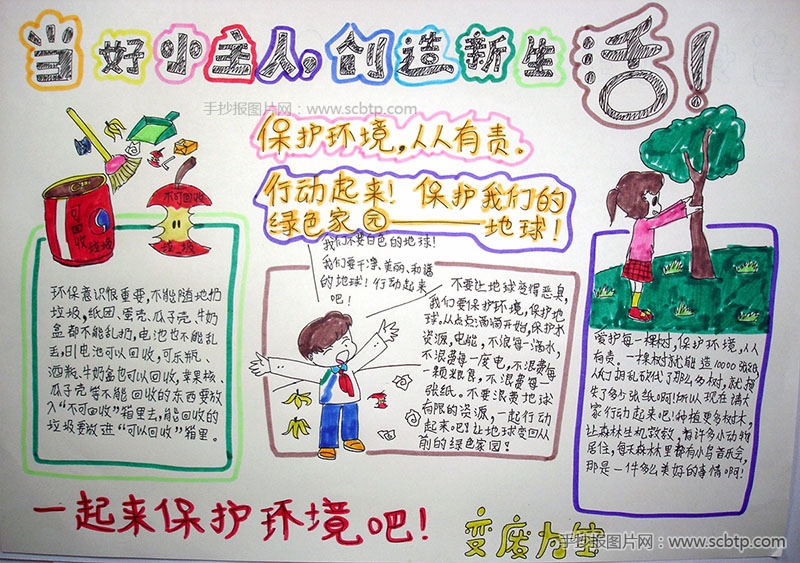 当好小主人,创造新生活!
手抄报图片网:www.scbtp.com
保护环境,人人有责。
行动起来!保护我们的
绿色家园——地球!
不可回收
垃圾
可回收
垃圾
环保意识很重要,不能随地扔
垃圾,纸团、蛋壳、瓜子壳、牛奶
盒都不能乱扔,电池也不能乱
丢,旧电池可以回收,可乐瓶、
酒瓶、牛奶盒也可以回收,苹果核、
瓜子壳等不能回收的东西要放
入“不可回收”箱里去,能回收的
垃圾要放进“可以回收”箱里。
我们不要白色的地球!
我们要干净、美丽、和谐
的地球!行动起来
吧!
不要让地球变得恶臭,
我们要保护环境,保护地
球。从点点滴滴开始,保护水
资源,电能,不浪每一滴水,
不浪费每一度电,不浪费每
一颗粮食,不浪费每一
张纸。不要浪费地球
有限的资源,一起行动
起来吧!让地球变回从
前的绿色家园!
爱护每一棵树,保护环境,人人
有责。一棵树就能造10000张纸,
人们胡乱砍伐了那么多树,就损
失了多少张纸啊!所以现在请大
家行动起来吧!种植更多树木,
让森林生机敦敦,有许多小动物
居住,每天森林里都有小鸟音乐会,
那是一件多么美好的事情啊!
一起来保护环境吧!
变废为宝
手抄报图片网:www.scbtp.com